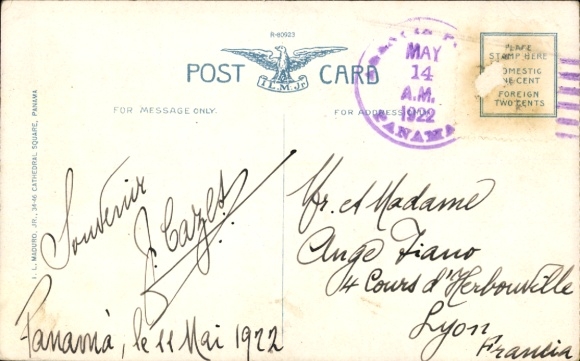 R-60923
POST CARD
I.L.M.Jr.
FOR MESSAGE ONLY.
FOR ADDRESS
I. L. MADURO, JR., 34-46 CATHEDRAL SQUARE, PANAMA
Souvenir
Panamá, le 11 Mai 1922
MAY
14
A.M.
1922
PANAMA
PLACE
STAMP HERE
DOMESTIC
ONE CENT
FOREIGN
TWO CENTS
Mr. et Madame
Ange Fiano
4 Cours d'Herbouville
Lyon
Francia